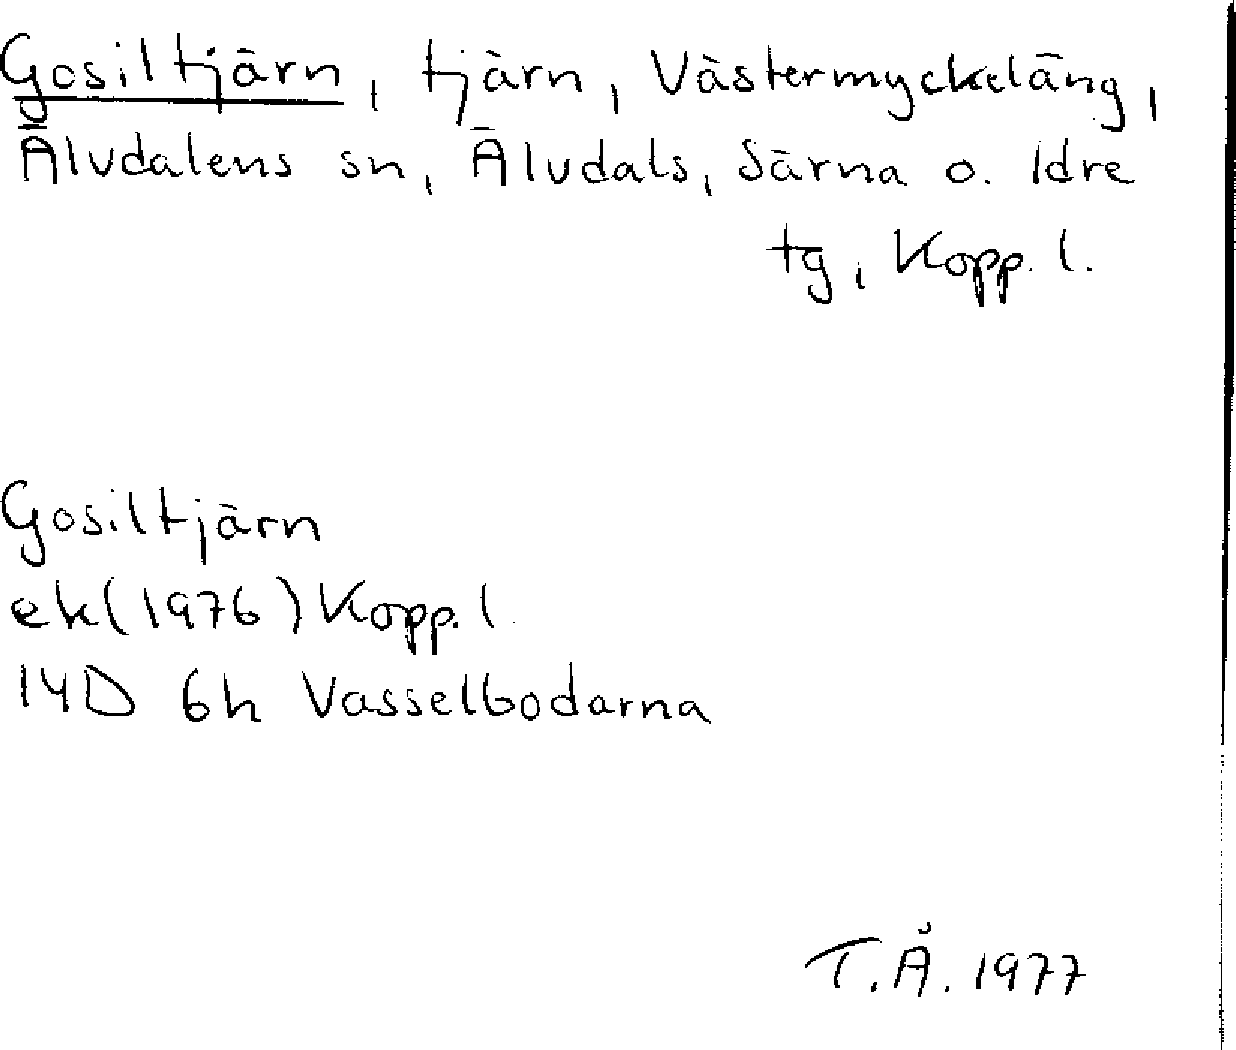 Gosiltjärn, tjärn, Västermyckeläng,
Älvdalens sn, Älvdals, Särna o. Idre
tg, Kopp. l.
Gosiltjärn
ek (1976) Kopp. l.
14D 6h Vasselbodarna
T.Å. 1977